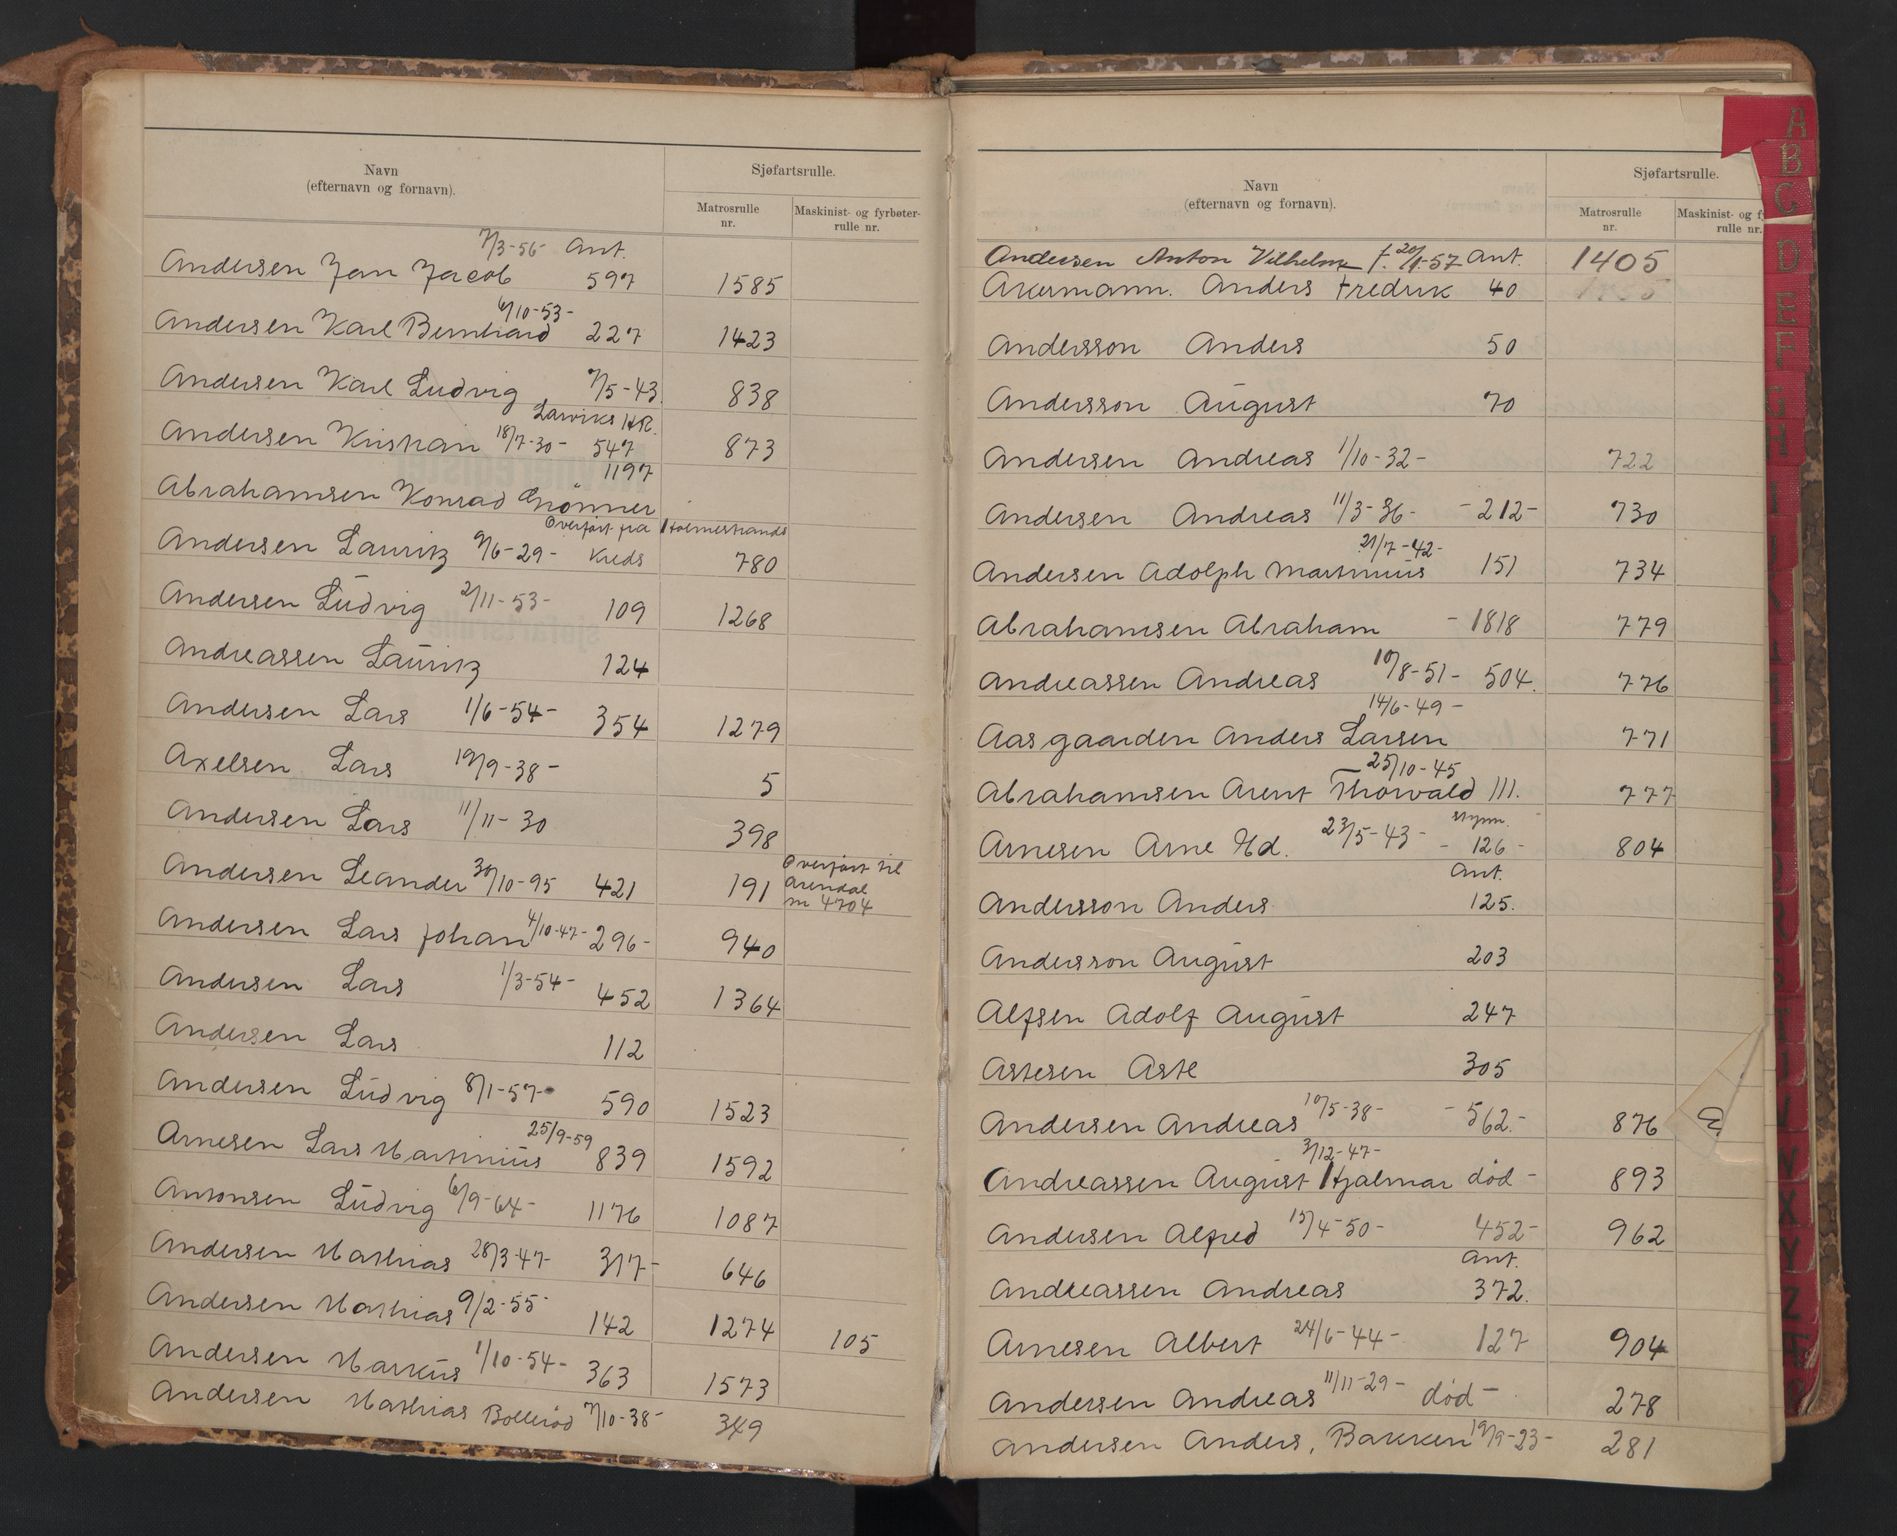 Navn
(efternavn og fornavn).
Sjøfartsrulle.
Matrosrulle nr.
Maskinist- og fyrbøter-rulle nr.
7/3-56- Ant.
Andersen Jan Jacob 597 1585
6/10-53-
Andersen Karl Bernhard 227 1423
Andersen Karl Ludvig 7/5-43. 838
Larviks HR.
Andersen Kristian 18/7-30- 547 873
1197
Abrahamsen Konrad Grønner
Overført fra Holmestrands
Andersen Lauritz 9/6-29- Kreds 780
Andersen Ludvig 2/11-53- 109 1268
Andreassen Lauritz 124
Andersen Lars 1/6-54- 354 1279
Axelsen Lars 19/9-38- 5
Andersen Lars 11/11-30 398
Overført til
Andersen Leander 30/10-95 421 191 Arendal
nr 4704
Andersen Lars Johan 4/10-47- 296- 940
Andersen Lars 1/3-54- 452 1364
Andersen Lars 112
Andersen Ludvig 8/1-57- 590 1523
25/9-59
Arnesen Lars Martinius 839 1592
Antonsen Ludvig 6/9-64- 1176 1087
Andersen Mathias 28/3-47- 317- 646
Andersen Mathias 9/2-55- 142 1274 105
Andersen Markus 1/10-54- 363 1573
Andersen Mathias Bollerød 7/10-38- 349
Navn
(efternavn og fornavn).
Sjøfartsrulle.
Matrosrulle nr.
Maskinist- og fy
rulle nr.
Andersen Anton Vilhelm f. 20/1-57 Ant. 1405
Akermann. Anders Fredrik 40
Andersson Anders 50
Andersson August 70
Andersen Andreas 1/10-32- 722
Andersen Andreas 11/3-36- -212- 730
21/7-42-
Andersen Adolph Martinius 151 734
Abrahamsen Abraham -1818 779
Andreassen Andreas 10/8-51- 504. 776
14/6-49-
Aasgaarden Anders Larsen 771
25/10-45
Abrahamsen Arent Thorvald III. 777
Arnesen Arne Ed. 23/5-43- -126- 804
Ant.
Andersson Anders 125.
Andersson August 203
Alfsen Adolf August 247
Astesen Aste 305
Andersen Andreas 10/5-38- -562.- 876
3/12-47-
Andreassen August Hjalmar død- 893
Andersen Alfred 15/4-50- 452- 962
Ant.
Andreassen Andreas 372.
Arnesen Albert 24/6-44- 127 904
Andersen Andreas 11/11-29- død- 278
Andersen Anders, Bakken 19/9-23- 281
A
B
C
D
E
F
G